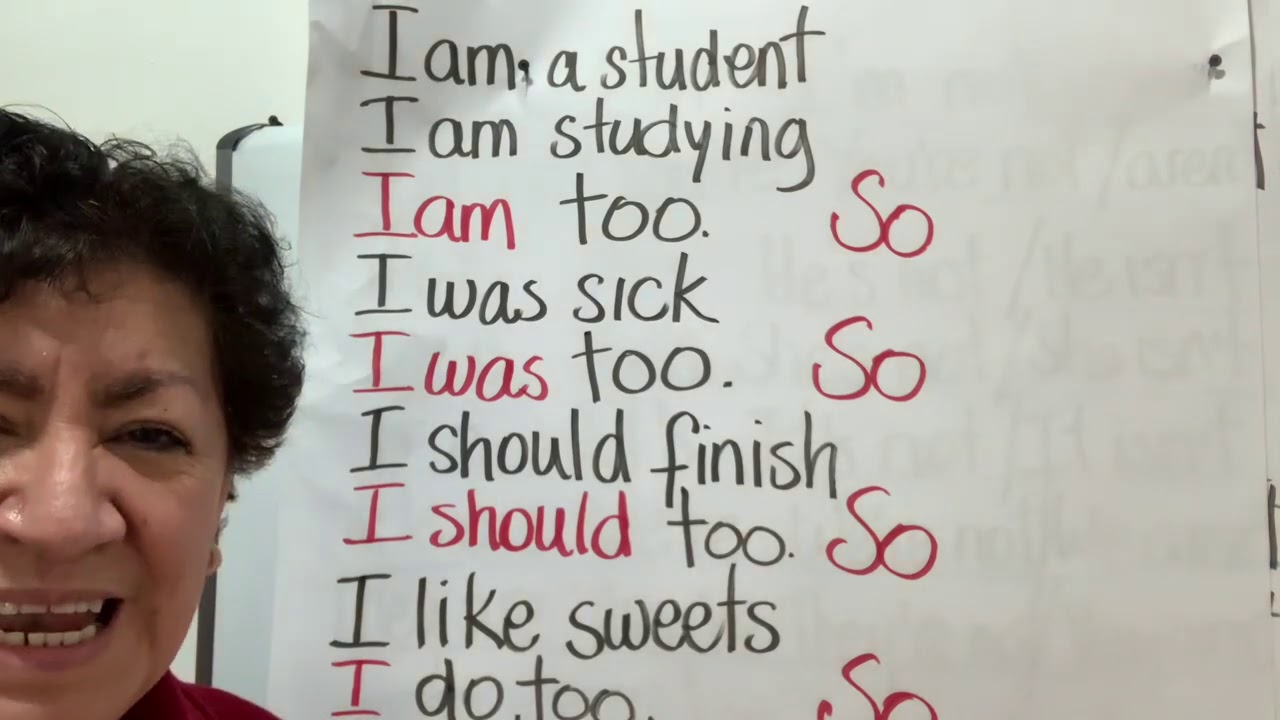 I am a student
I am studying
I am too. So
I was sick
I was too. So
I should finish
I should too. So
I like sweets
I do too. So